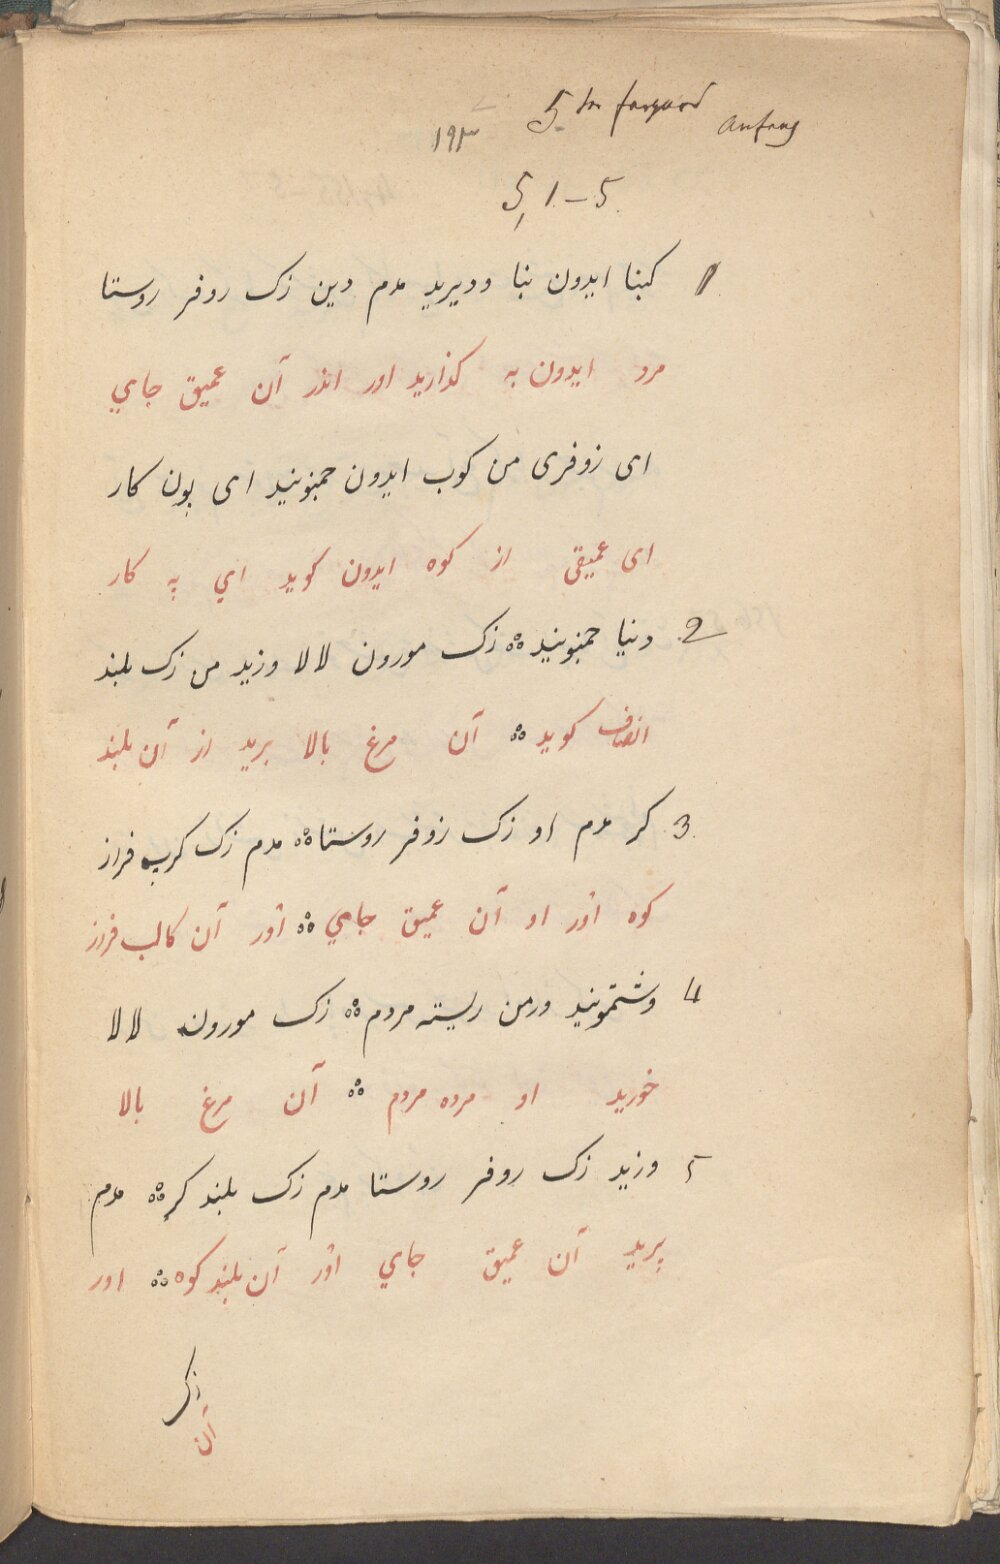 5ter fargard Anfang
۱۹۳
5, 1–5.
1 کبنا ایدون بنا ودیرید مدم دین زک روفر روستا
مرد ایدون به کذارید اور اندر آن عمیق جاي
ای زوفری من کوب ایدون جمنونید ای بون کار
ای عمیقی از کوه ایدون کوید اي په کار
2. دنیا جمنونید ஃ زک مورون لالا وزید من زک بلند
انصاف کوید ஃ آن مرغ بالا برید از آن بلند
3. کر مدم او زک زوفر روستا ஃ مدم زک کرپ فراز
کوه اور او آن عمیق جاي ஃ اور آن کالب فراز
4 وشتمونید ورمن ریسته مردم ஃ زک مورون لالا
خورید او مرده مردم ஃ آن مرغ بالا
5 وزید زک روفر روستا مدم زک بلند کر ஃ مدم
پرید آن عمیق جاي اور آن بلند کوه ஃ اور
زک
آن